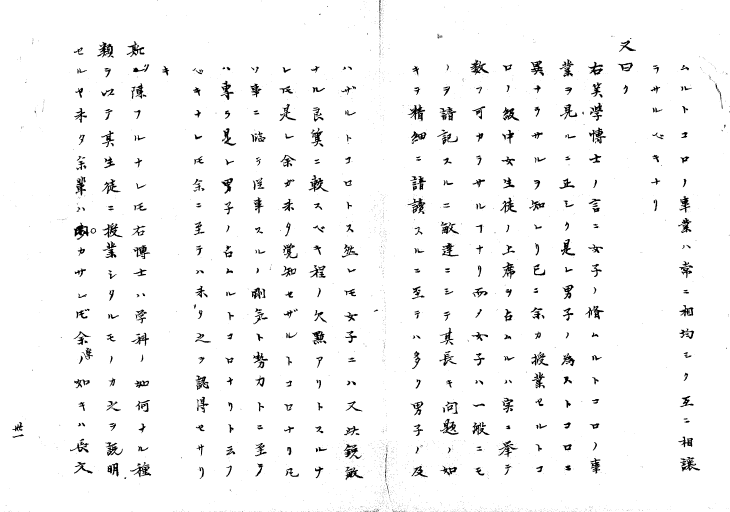 ムルトコロノ事業ハ常ニ相均シク互ニ相譲
ラサルベキナリ
又曰ク
右英学博士ノ言ニ女子ノ脩ムルトコロノ事
業ヲ見ルニ正シク是レ男子ノ為ストコロニ
異ナラサルヲ知レリ已ニ余カ授業セルトコ
ロノ級中女生徒ノ上席ヲ占ムルハ実ニ挙テ
数フ可カラサルフナリ而ノ女子ハ一般ニモ
ノヲ諳記スルニ敏達ニシテ其長キ問題ノ如
キヲ精細ニ諳讀スルニ至テハ多ク男子ノ及
ハザルトコロトス然レㇳモ女子ニハ又 鋭敏
ナル良質ニ較スベキ程ノ欠點アリトスルナ
レㇳモ是レ余ガ未タ覚知セザルトコロナリ凡
ソ事ニ臨テ従事スルノ剛気ト勢力トニ至テ
ハ専ラ是レ男子ノ占ムルトコロナリト云フ
ベキナレㇳモ余ニ至テハ未タ之ヲ認得セサリ
キ
斯ク陳フルナレㇳモ右博士ハ学科ノ如何ナル種
類ヲ以テ其生徒ニ授業シタルモノカ之ヲ説明
セルヤ未タ余輩ハ聞カサレㇳモ余ノ如キハ長文
博
卅一